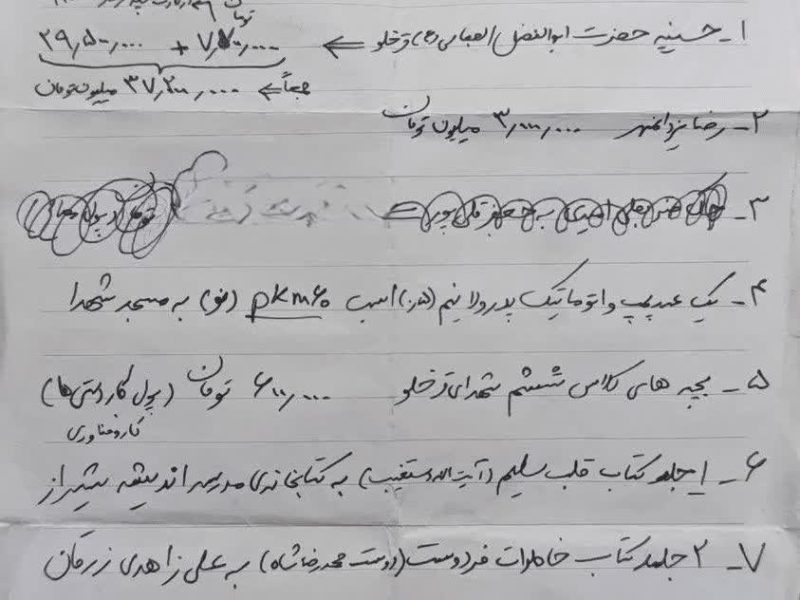 تومان
۱- حسینیه حضرت ابوالفضل العباس (ع) قزخلو ⇐ ۷٫۷۰۰٫۰۰۰ + ۲۹٫۵۰۰٫۰۰۰
جمعاً ⇐ ۳۷٫۲۰۰٫۰۰۰ میلیون تومان
۲- رضا یزدانمهر ۳٫۰۰۰٫۰۰۰ میلیون تومان
۳-
۴- یک عدد پمپ و اتوماتیک پدرولا نیم (هزن) اسب pkm۶۰ (نو) به مسجد شهدا
۵- بچه های کلاس ششم شهدای قزخلو ۶۰۰٫۰۰۰ تومان (پول کار دستی ها)
کاروفناوری
۶- ۱ جلد کتاب قلب سلیم (آیت الله دستغیب) به کتابخانه‌ی مدرسه اندیشه شیراز
۷- ۲ جلد کتاب خاطرات فردوست (دوست محمدرضا شاه) به علی زاهدی زرقان